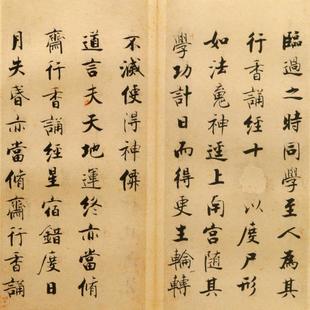 臨過之時同學至人為其
行香誦經十以度尸形
如法魂神逕上南宮隨其
學功計日而得更生輪轉
不滅便得神僊
道言夫天地運終亦當脩
齋行香誦經星宿錯度日
月失昏亦當脩齋行香誦